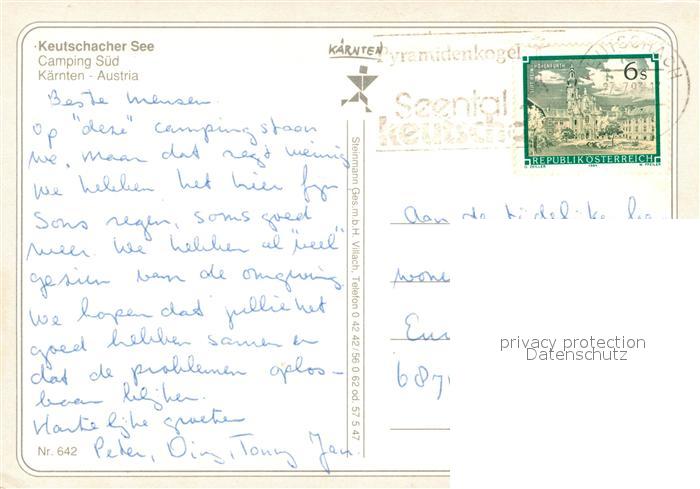 Keutschacher See
Camping Süd
Kärnten - Austria
KÄRNTEN
Pyramidenkogel
Seental
Keutsch
STIFT HOHENFURTH
6s
REPUBLIK ÖSTERREICH
Beste mensen.
Op "deze" camping staan
we, maar dat zegt weinig
We hebben het hier fijn
Soms regen, soms goed
weer. We hebben al "veel"
gezien van de omgeving.
We hopen dat jullie het
goed hebben samen en
dat de problemen oplos-
baar blijken.
Hartelijke groeten
Peter, Diny, Tonny Jan.
Nr. 642
Steinmann Ges.m.b.H. Villach, Telefon 0 42 42/56 0 62 od. 57 5 47
Aan de tijdelijke
privacy protection
Datenschutz
687